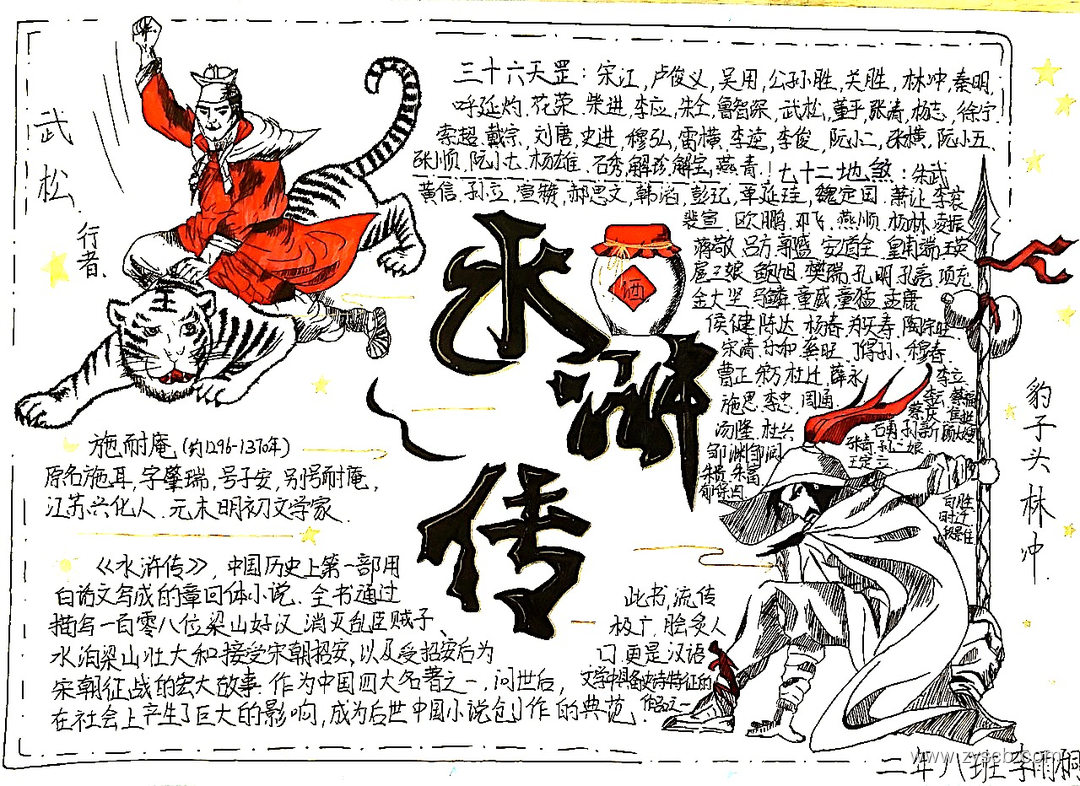 三十六天罡：宋江，卢俊义，吴用，公孙胜，关胜，林冲，秦明，
呼延灼，花荣，柴进，李应，朱仝，鲁智深，武松，董平，张清，杨志，徐宁，
索超，戴宗，刘唐，史进，穆弘，雷横，李逵，李俊，阮小二，张横，阮小五，
张顺，阮小七，杨雄，石秀，解珍，解宝，燕青！七十二地煞：朱武
黄信，孙立，宣赞，郝思文，韩滔，彭玘，单廷珪，魏定国，萧让，李衮
裴宣，欧鹏，邓飞，燕顺，杨林，凌振
蒋敬，吕方，郭盛，安道全，皇甫端，王英
扈三娘，鲍旭，樊瑞，孔明，孔亮，项充
金大坚，马麟，童威，童猛，孟康
侯健，陈达，杨春，郑天寿，陶宗旺
宋清，乐和，龚旺，丁得孙，穆春
曹正，宋万，杜迁，薛永
施恩，李忠，周通
汤隆，杜兴
邹渊，邹闰
朱贵，朱富
李立
武松
行者
水浒传
酒
王
豹子头林冲
施耐庵（约1296-1370年）
原名施耳，字肇瑞，号子安，别号耐庵，
江苏兴化人．元末明初文学家．
《水浒传》，中国历史上第一部用
白话文写成的章回体小说．全书通过
描写一百零八位梁山好汉，消灭乱臣贼子、
水泊梁山壮大和接受宋朝招安，以及受招安后为
宋朝征战的宏大故事．作为中国四大名著之一，问世后，
在社会上产生了巨大的影响，成为后世中国小说创作的典范．
此书，流传
极广，脍炙人
口，更是汉语
文学中具备史诗特征的
作品之一
二年八班 李雨桐
www.zyscb.com